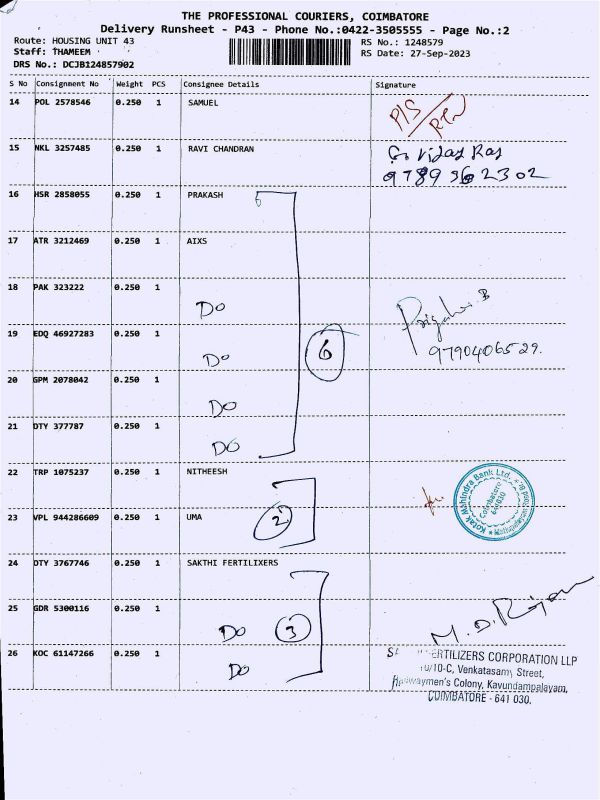 THE PROFESSIONAL COURIERS, COIMBATORE
Delivery Runsheet - P43 - Phone No.:0422-3505555 - Page No.:2
Route: HOUSING UNIT 43 RS No.: 1248579
Staff: THAMEEM RS Date: 27-Sep-2023
DRS No.: DCJB124857902
S No Consignment No Weight PCS Consignee Details Signature
14 POL 2578546 0.250 1 SAMUEL
15 NKL 3257485 0.250 1 RAVI CHANDRAN
9789362302
16 HSR 2858055 0.250 1 PRAKASH
17 ATR 3212469 0.250 1 AIXS
18 PAK 323222 0.250 1
Do
19 EDQ 46927283 0.250 1 6
9790406529.
Do
20 GPM 2078042 0.250 1
Do
21 DTY 377787 0.250 1
Do
22 TRP 1075237 0.250 1 NITHEESH
23 VPL 944286609 0.250 1 UMA 2
Kotak Mahindra Bank Ltd.
Coimbatore
641030
24 DTY 3767746 0.250 1 SAKTHI FERTILIXERS
25 GDR 5300116 0.250 1
Do 3
M.D. Rajan
26 KOC 61147266 0.250 1
Do
FERTILIZERS CORPORATION LLP
10/10-C, Venkatasamy Street,
Railwaymen's Colony, Kavundampalayam,
COIMBATORE - 641 030.